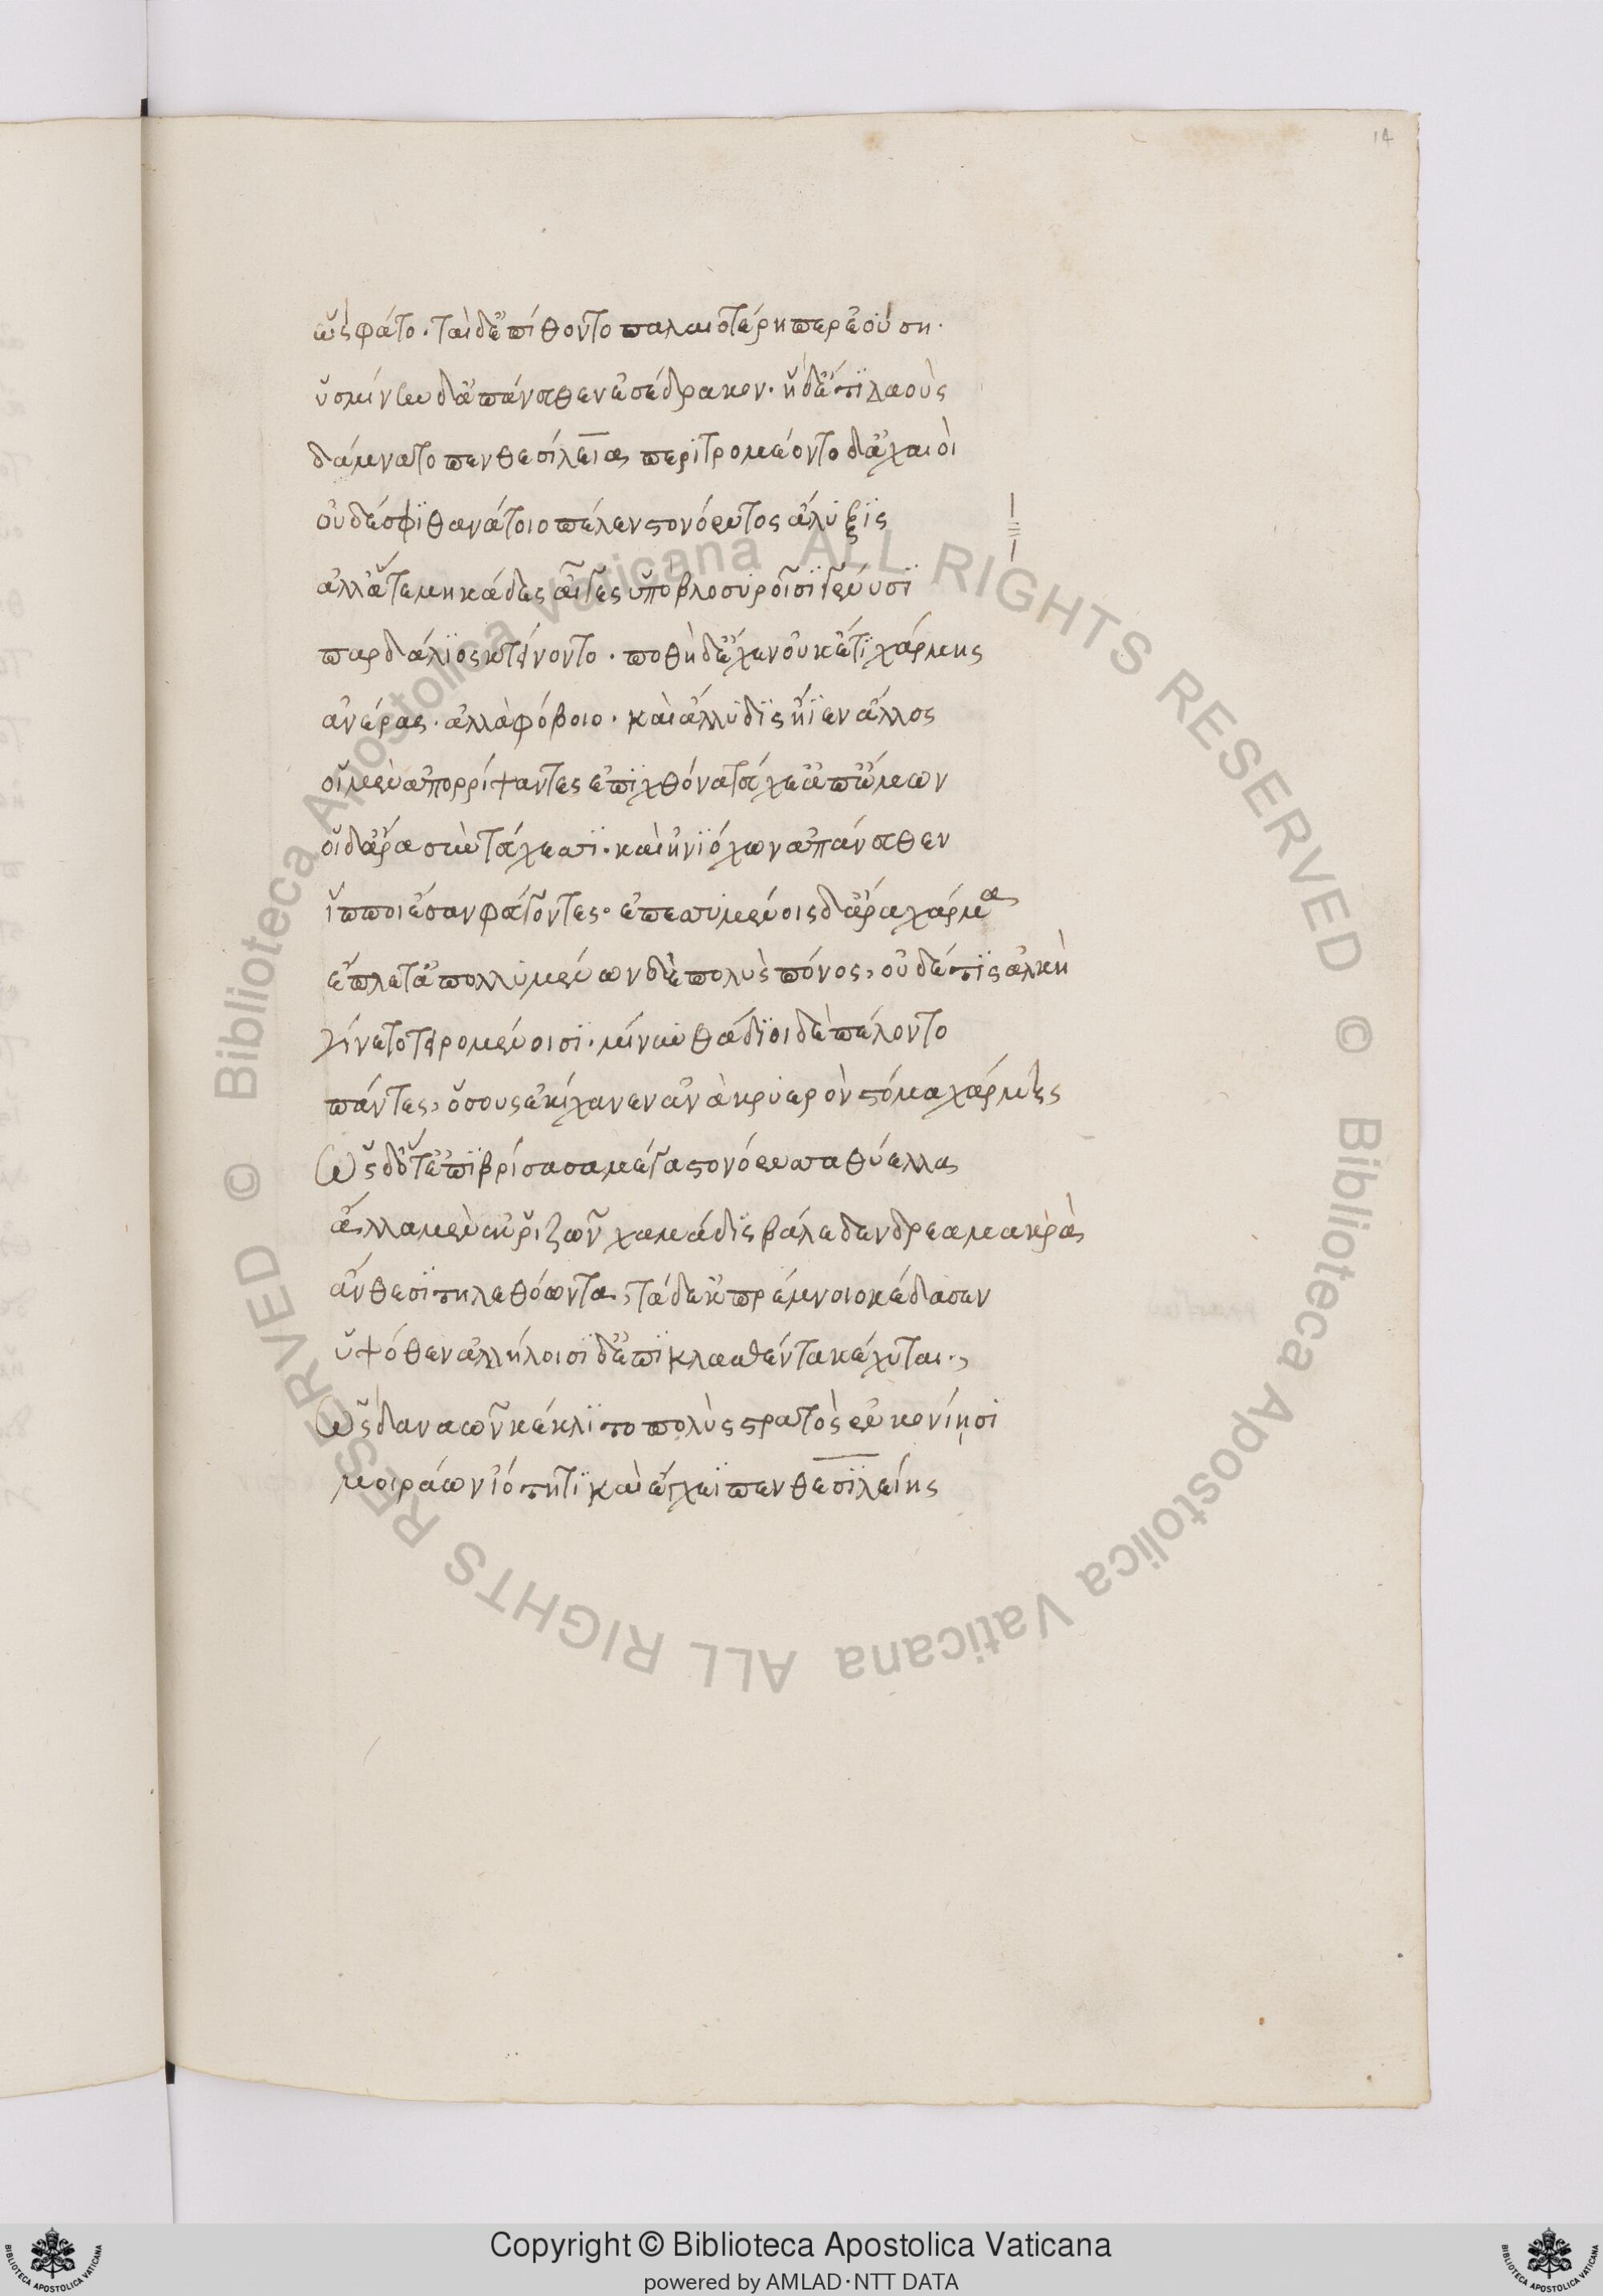 14
ὣς φάτο· ταὶ δ' ἐπίθοντο παλαιοτέρη περ ἐούση·
ὑσμίνην δ' ἀπάνευθεν ἐσέδρακον· ἡ δ' ἔτι λαοὺς
δάμνατο πενθεσίλεια, περιτρομέοντο δ' ἀχαιοὶ
οὐδέ σφι θανάτοιο πέλεν στονόεντος ἄλυξις
ἀλλ' ἅτε μηκάδες αἶγες ὑπὸ βλοσυροῖσι γένυσι
παρδάλιος κτείνοντο· ποθὴ δ' ἔχεν οὐκέτι χάρμης
ἀνέρας· ἀλλὰ φόβοιο· καὶ ἄλλυδις ἤϊεν ἄλλος
οἱ μὲν ἀπορρίψαντες ἐπὶ χθόνα τεύχε' ἀπ' ὤμων
οἱ δ' ἄρα σὺν τεύχεσι· καὶ ἡνιόχων ἀπάνευθεν
ἵπποι ἔσαν φεύγοντες· ἐπεσσυμένοις δ' ἄρα χάρμα
ἔπλετ' ἀπολλυμένων δὲ πολὺς πόνος, οὐδέ τις ἀλκὴ
γίνετο τειρομένοισι· μίνυνθάδιοι δὲ πέλοντο
πάντες, ὅσους ἐκίχανεν ἀνὰ κρυερὸν στόμα χάρμης
Ὡς δ' ὅτ' ἐπιβρίσασα μέγα στονόεσσα θύελλα
ἄλλα μὲν ἐκ ῥιζῶν χαμάδις βάλε δένδρεα μακρὰ
ἄνθεσι τηλεθόωντα, τὰ δ' ἐκ πρέμνοιο κέδασεν
ὑψόθεν ἀλλήλοισι δ' ἐπικλασθέντα κέχυται·,
Ὡς δαναῶν κέκλιτο πολὺς στρατὸς ἐν κονίῃσι
μοιράων ἰότητι καὶ ἔγχεϊ πενθεσιλείης
Copyright © Biblioteca Apostolica Vaticana
powered by AMLAD·NTT DATA
© Biblioteca Apostolica Vaticana ALL RIGHTS RESERVED © Biblioteca Apostolica Vaticana ALL RIGHTS RESERVED
BIBLIOTECA APOSTOLICA VATICANA
BIBLIOTECA APOSTOLICA VATICANA